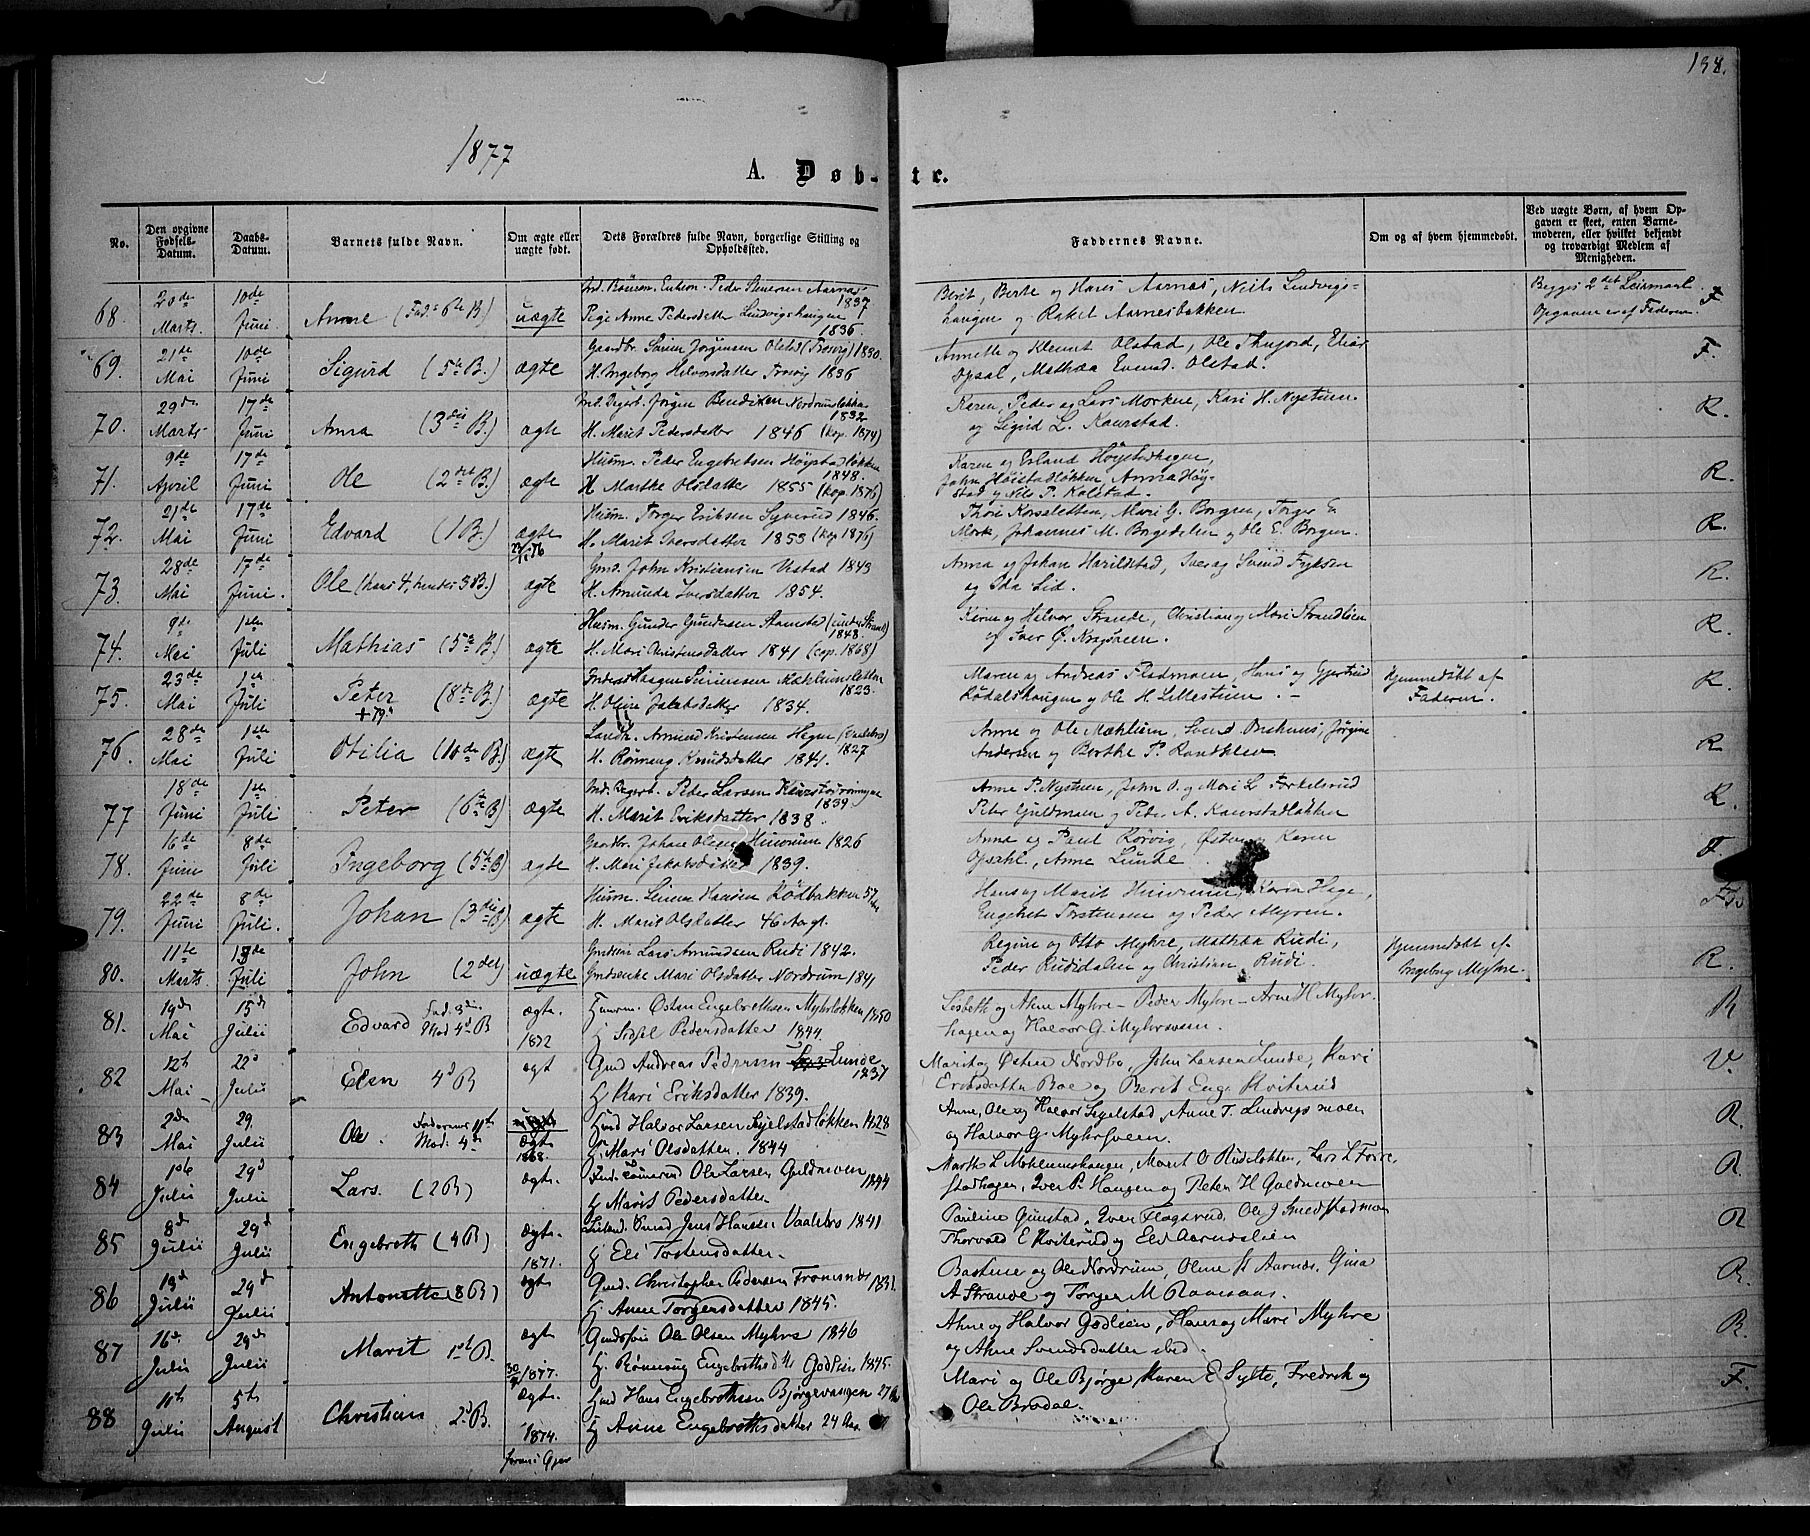 138.
1877
A. Døb- te.
No.
Den opgivne Fødsels-Datum.
Daabs-Datum.
Barnets fulde Navn.
Om ægte eller uægte født.
Dets Forældres fulde Navn, borgerlige Stilling og Opholdssted.
Faddernes Navne.
Om og af hvem hjemmedøbt.
Ved uægte Børn, af hvem Opgaven er skeet, enten Barnemoderen, eller hvilket bekjendt og troværdigt Medlem af Menigheden.
68. 20de Marts. 10de Juni Anne (Fad. 6te B) uægte
Peder Simensen Aarnæs 1837
Pige Anne Pedersdatter Lindvigshaugen 1836.
Berit, Berte og Hans Aarnæs, Nils Lindvigs-
haugen og Rakel Aarnesbakken
Begges 2det Leiermaal.
Opgaven er af Faderen. F
69. 21de Mai 10de Juni Sigurd (5te B.) ægte
Gaardbr. Søren Jørgensen Olstad (Trosvig) 1830.
H. Ingeborg Helvorsdatter Trosvig 1836
Annette og Klemet Olstad, Ole Thujord, Elias
Opsal, Mathea Evensd. Olstad. F.
70. 29de Marts 17de Juni Anna (3die B.) ægte
Jørgen Bendixen Nordrumsløkka 1832
H. Marit Pedersdatter 1846 (kop. 1874)
Karen, Peder og Lars Morken, Kari H. Nystuen.
og Sigrid L. Kaurstad. R.
71. 9de April 17de Juni Ole (2det B.) ægte
Husm. Peder Engebretsen Høystadløkken 1848.
H. Marthe Olsdatter 1855 (kop. 1876)
Karen og Erland Høystadhagen,
John Høistadløkken, Anna Høy-
stad og Nils P. Kolstad. R.
72. 21de Mai 17de Juni Edvard (1 B.) ægte
Husm. Torger Eriksen Syverud 1846.
H. Marit Iversdatter 1853 (kop 1876)
Thore Korsletten, Mari G. Borgen, Torger E.
Mork, Johannes M. Borgedalen og Ole E. Borgen. R.
73. 28de Mai 17de Juni. Ole (hans 4, hendes 3 B.) ægte
Gmd. John Kristiansen Ulstad 1843
H. Amunda Iversdatter 1854.
Anna og Johan Harildstad, Iver og Svend Fryksen
og Ida Lid. R.
74. 9de Mai 1ste Juli Mathias (5te B) ægte
Husm. Gunder Gundersen Stamstad (under Strand) 1848.
H. Mari Christensdatter 1841 (cop. 1868)
Karen og Helvor Strande, Christian og Mari Strandlien
og Iver Ø. Kragsveen. R.
75. 23de Mai 1ste Juli Peter (8de B.) ægte
+79
Inderst Haagen Mæhlumsletten 1823.
H. Oline Jakobsdatter 1834.
Maren og Andreas Fladmoen, Hans og Gjertrud
Rødalshaugen og Ole H. Lillestuen.
Hjemmedøbt af
Faderen. R.
76. 28de Mai 1ste Juli Otilia (10de B.) ægte
Landh. Amund Kristensen Hegne (Vaalebro) 1827
H. Rønnaug Knudsdatter 1841.
Anne og Ole Mæhlum, Svend Onshuus, Jørgine
Andersen og Berthe P. Randklev R
77 18de Juni 1ste Juli Peter (6te B) ægte
Peder Larsen 1839
H. Marit Eriksdatter 1838.
Anne P. Nystuen, John O. og Mari L. Torkelsrud
Peter Guldmoen og Peder A. Kaurstadløkken R.
78. 16de Juni 8de Juli Ingeborg (5te B) ægte
Gaardbr. Johan Olsen Hunorum 1826
H. Mari Jakobsdatter 1839.
Anna og Paul Rørvig, Østen Karen
Opsahl, Anne Lunde F.
79. 22de Juni 8de Juli. Johan (3die B) ægte
Husm. Simen Hansen Rødbakken 57
H. Marit Olsdatter 46 Aar gl.
Hans og Marit Hunorum, Karen Hage,
Engebret Torstensen og Peder Myren.
80. 11te Marts 13de Juli John (2det) uægte
Gmdsøn Lars Amundsen Rudi 1842.
Gmdsenke Mari Olsdatter Nordrum 1841
Regine og Otto Myhre, Mathea Rudi,
Peder Rudidalen og Christian Rudi.
Hjemmedøbt af
Ingeborg Myhre. R.
81. 19de Mai 15de Julii Edvard Fad. 3die Mod. 4de B ægte. 1872
Husm. Østen Engebrethsen Myhreløkken 1850
H Sidsel Pedersdatter 1844.
Lisbeth og Ahne Myhre – Peder Myhre – Arne H Myhre-
hagen og Halvor G. Myhrsveen. R
82 12te Mai 22de Julii Elen 4de B ægt
Gmd Andreas Pedersen Lunde 1837
H Kari Eriksdatter 1839.
Marit og Østen Nordbo, John Larsen Lunde, Kari
Eriksdatter Boe og Berit Eng. Kviterud V.
83 2den Mai 29 Julii Ole. Faderens 11te Mod. 4de ægte 1868.
Gmd Halvor Larsen Segelstadløkken 1828
H. Mari Olsdatter. 1844
Anne, Ole og Halvor Segelstad, Anne T. Lindvigsmoen
og Halvor G. Myhrsveen. R.
84 1ste Julii 29de Julii Lars. (2 B) ægte.
Ole Larsen Guldmoen 1844
H Marit Pedersdatter.
Marthe L Mæhlumshaugen, Marit O Rudiløkken, Lars L Forre-
stadhagen, Iver P. Haugen og Peter H Guldmoen R
85 8de Julii 29de Julii Engebreth (4 B) ægte. 1871.
Smed Jens Hansen Vaalebro 1841
H Eli Torstensdatter.
Pauline Gunstad, Iver Flagsrud, Ole J Smedstadmo
Thorvald E Kviterud og Eli Aarnæslien R
86 19de Julii 29de Julii Antonette (8 B) ægt
Gmd. Christopher Pedersen Tromsnæs 1831.
H Anne Torgersdatter 1845.
Bastine og Ole Nordrum, Oline H Aarnæs, Gina
A Strande og Torger M Ramsaas. R.
87 16de Julii 29de Julii Marit 1ste B. ægte 30/4 1877.
Gmdsføi Ole Olsen Myhre 1846
H. Rønnaug Engebrethsdtr Godlien 1845.
Ahne og Halvor Godlien, Hans og Mari Myhre
og Ahne Svendsdatter ibid. R.
88 11te Julii 5te August Christian 2de B. ægte. 1874.
Gmd Hans Engebrethsen Bjørgevangen 27 Aar
H Anne Engebrethsdatter 24 Aar.
Mari og Ole Bjørge, Karen E Sylte, Fredrik og
Ole Brodal. F.